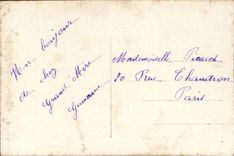 Un bonjour
de chez
Grand'Mère
Germaine
Mademoiselle Picard
20 Rue Chaudron
Paris